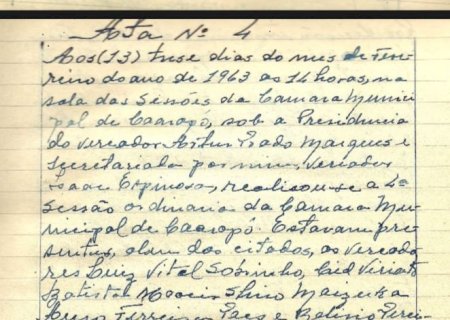 Acta Nº 4
Aos (13) trese dias do mes de Feve
reiro do ano de 1963 as 14 horas, na
sala das Sessões da Camara Munici
pal de Caarapó, sob a Presidencia
do vereador Artur Prado Marques e
secretariada por mim, Vereador
Isaac Espinosa, realisou-se a 4ª
Sessão ordinaria da Camara Mu-
nicipal de Caarapó. Estavam pre
sentes, alem dos citados, os vereado
res Luiz Vital Sobrinho, Cid Viriato
Batista,
Ferreira Paes e